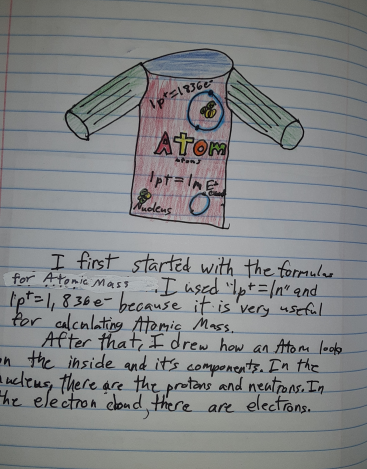 1p+=1836e-
Atom
atoms
1p+=1n
Nucleus
I first started with the formulas
for Atomic Mass. I used "1p+=1n" and
1p+=1,836e- because it is very useful
for calculating Atomic Mass.
After that, I drew how an Atom looks
on the inside and it's components. In the
nucleus, there are the protons and neutrons. In
the electron cloud, there are electrons.